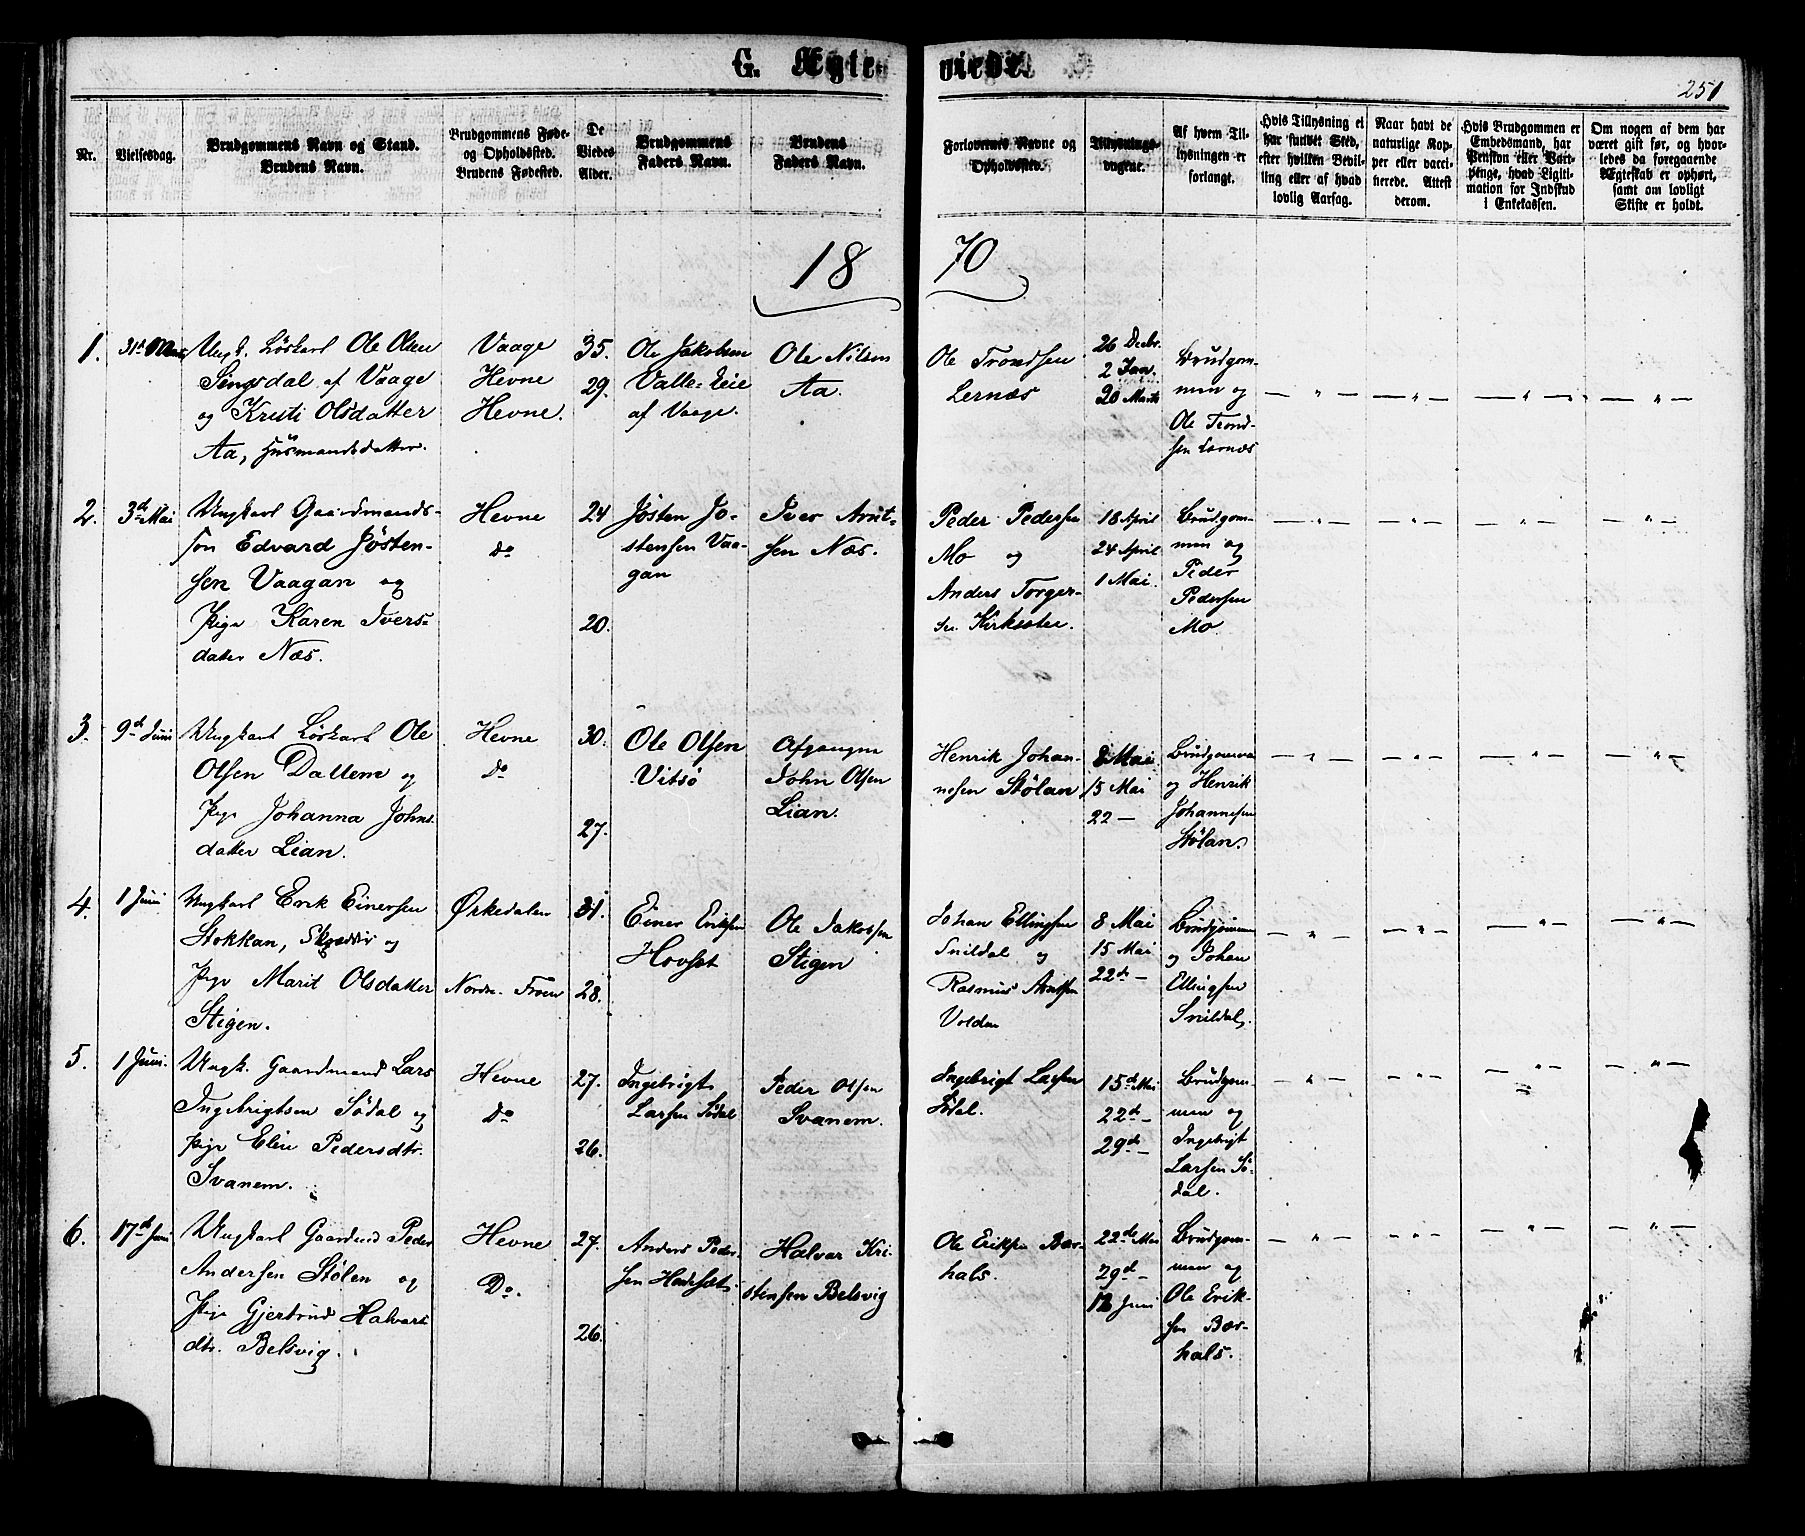 G. Ægteviede.
251
Nr.
Vielsesdag.
Brudgommens Navn og Stand.
Brudens Navn.
Brudgommens Føde-
og Opholdssted.
Brudens Fødested.
De
Viedes
Alder.
Brudgommens
Faders Navn.
Brudens
Faders Navn.
Forlovernes Navne og
Opholdssted.
Tillysnings-
dagene.
Af hvem Til-
lysningen er
forlangt.
Hvis Tillysning ei
har fundet Sted,
efter hvilken Bevil-
ling eller af hvad
lovlig Aarsag.
Naar havt de
naturlige Kop-
per eller vacci-
nerede. Attest
derom.
Hvis Brudgommen er
Embedsmand, har
Pension eller Vart-
penge, hvad Ligiti-
mation for Indskud
i Enkekassen.
Om nogen af dem har
været gift før, og hvor-
ledes da foregaaende
Ægteskab er ophørt,
samt om lovligt
Skifte er holdt.
1870
1.
Ungk. Løskarl Ole Olsen
Singsdal af Vaage
og Kristi Olsdatter
Aa, Husmandsdatter.
Vaage
Hevne
Hevne.
35.
29.
Ole Jakobsen
Valle-Eie
af Vaage.
Ole Nilsen
Aa.
Ole Trondsen
Lernæs
26 Decbr.
2 Jan.
20 Marts
Brudgom-
men og
Ole Trond-
sen Lernæs
— " —
— " —
— " —
— " —
2.
3d Mai
Ungkarl Gaardmands-
søn Edvard Jøsten-
sen Vaagan og
Pige Karen Ivers-
datter Næs.
Hevne
do
24
20.
Jøsten Jo-
stensen Vaa-
gan
Iver Arnt-
sen Næs.
Peder Pedersen
Mo og
Anders Torger-
sen Kirksæter.
18 April
24 April
1 Mai.
Brudgom-
men og
Peder
Pedersen
Mo.
— " —
— " —
— " —
— " —
3.
9d Juni
Ungkarl Løskarl Ole
Olsen Dallem og
Pige Johanna Johns-
datter Lian.
Hevne
do
30.
27.
Ole Olsen
Vitsø
Afgangne
John Olsen
Lian.
Henrik Johan-
nesen Stølan
8 Mai
15 Mai
22 —
Brudgommen
og Henrik
Johannesen
Stølan.
— " —
— " —
— " —
— " —
4.
1 Juni
Ungkarl Erik Einersen
Stokkan, Skrædder og
Pige Marit Olsdatter
Stigen.
Ørkedalen
Nordre Froen
31.
28.
Einer Eriksen
Hovset
Ole Jakobsen
Stigen
Johan Ellingsen
Snildal og
Rasmus Arntsen
Volden
8 Mai
15 Mai
22de —
Brudgommen
og Johan
Ellingsen
Snildal.
— " —
— " —
— " —
— " —
5.
1 Juni.
Ungk. Gaardmand Lars
Ingebrigtsen Sødal og
Pige Elen Pedersdtr.
Svanem.
Hevne
do
27.
26.
Ingebrigt
Larsen Sødal
Peder Olsen
Svanem.
Ingebrigt Larsen
Sødal.
15de Mai
22de —
29de —
Brudgom-
men og
Ingebrigt
Larsen Sø-
dal.
— " —
— " —
— " —
— " —
6.
17de Juni
Ungkarl Gaardmd Peder
Andersen Stølen og
Pige Gjertrud Halvars-
dtr. Belsvig.
Hevne
Do.
27.
26.
Anders Peder-
sen
Halvar Kri-
stensen Belsvig
Ole Eriksen Bær-
hals.
22de Mai
29de —
12 Juni
Brudgom-
men og
Ole Erik-
sen Bær-
hals.
— " —
— " —
— " —
— " —